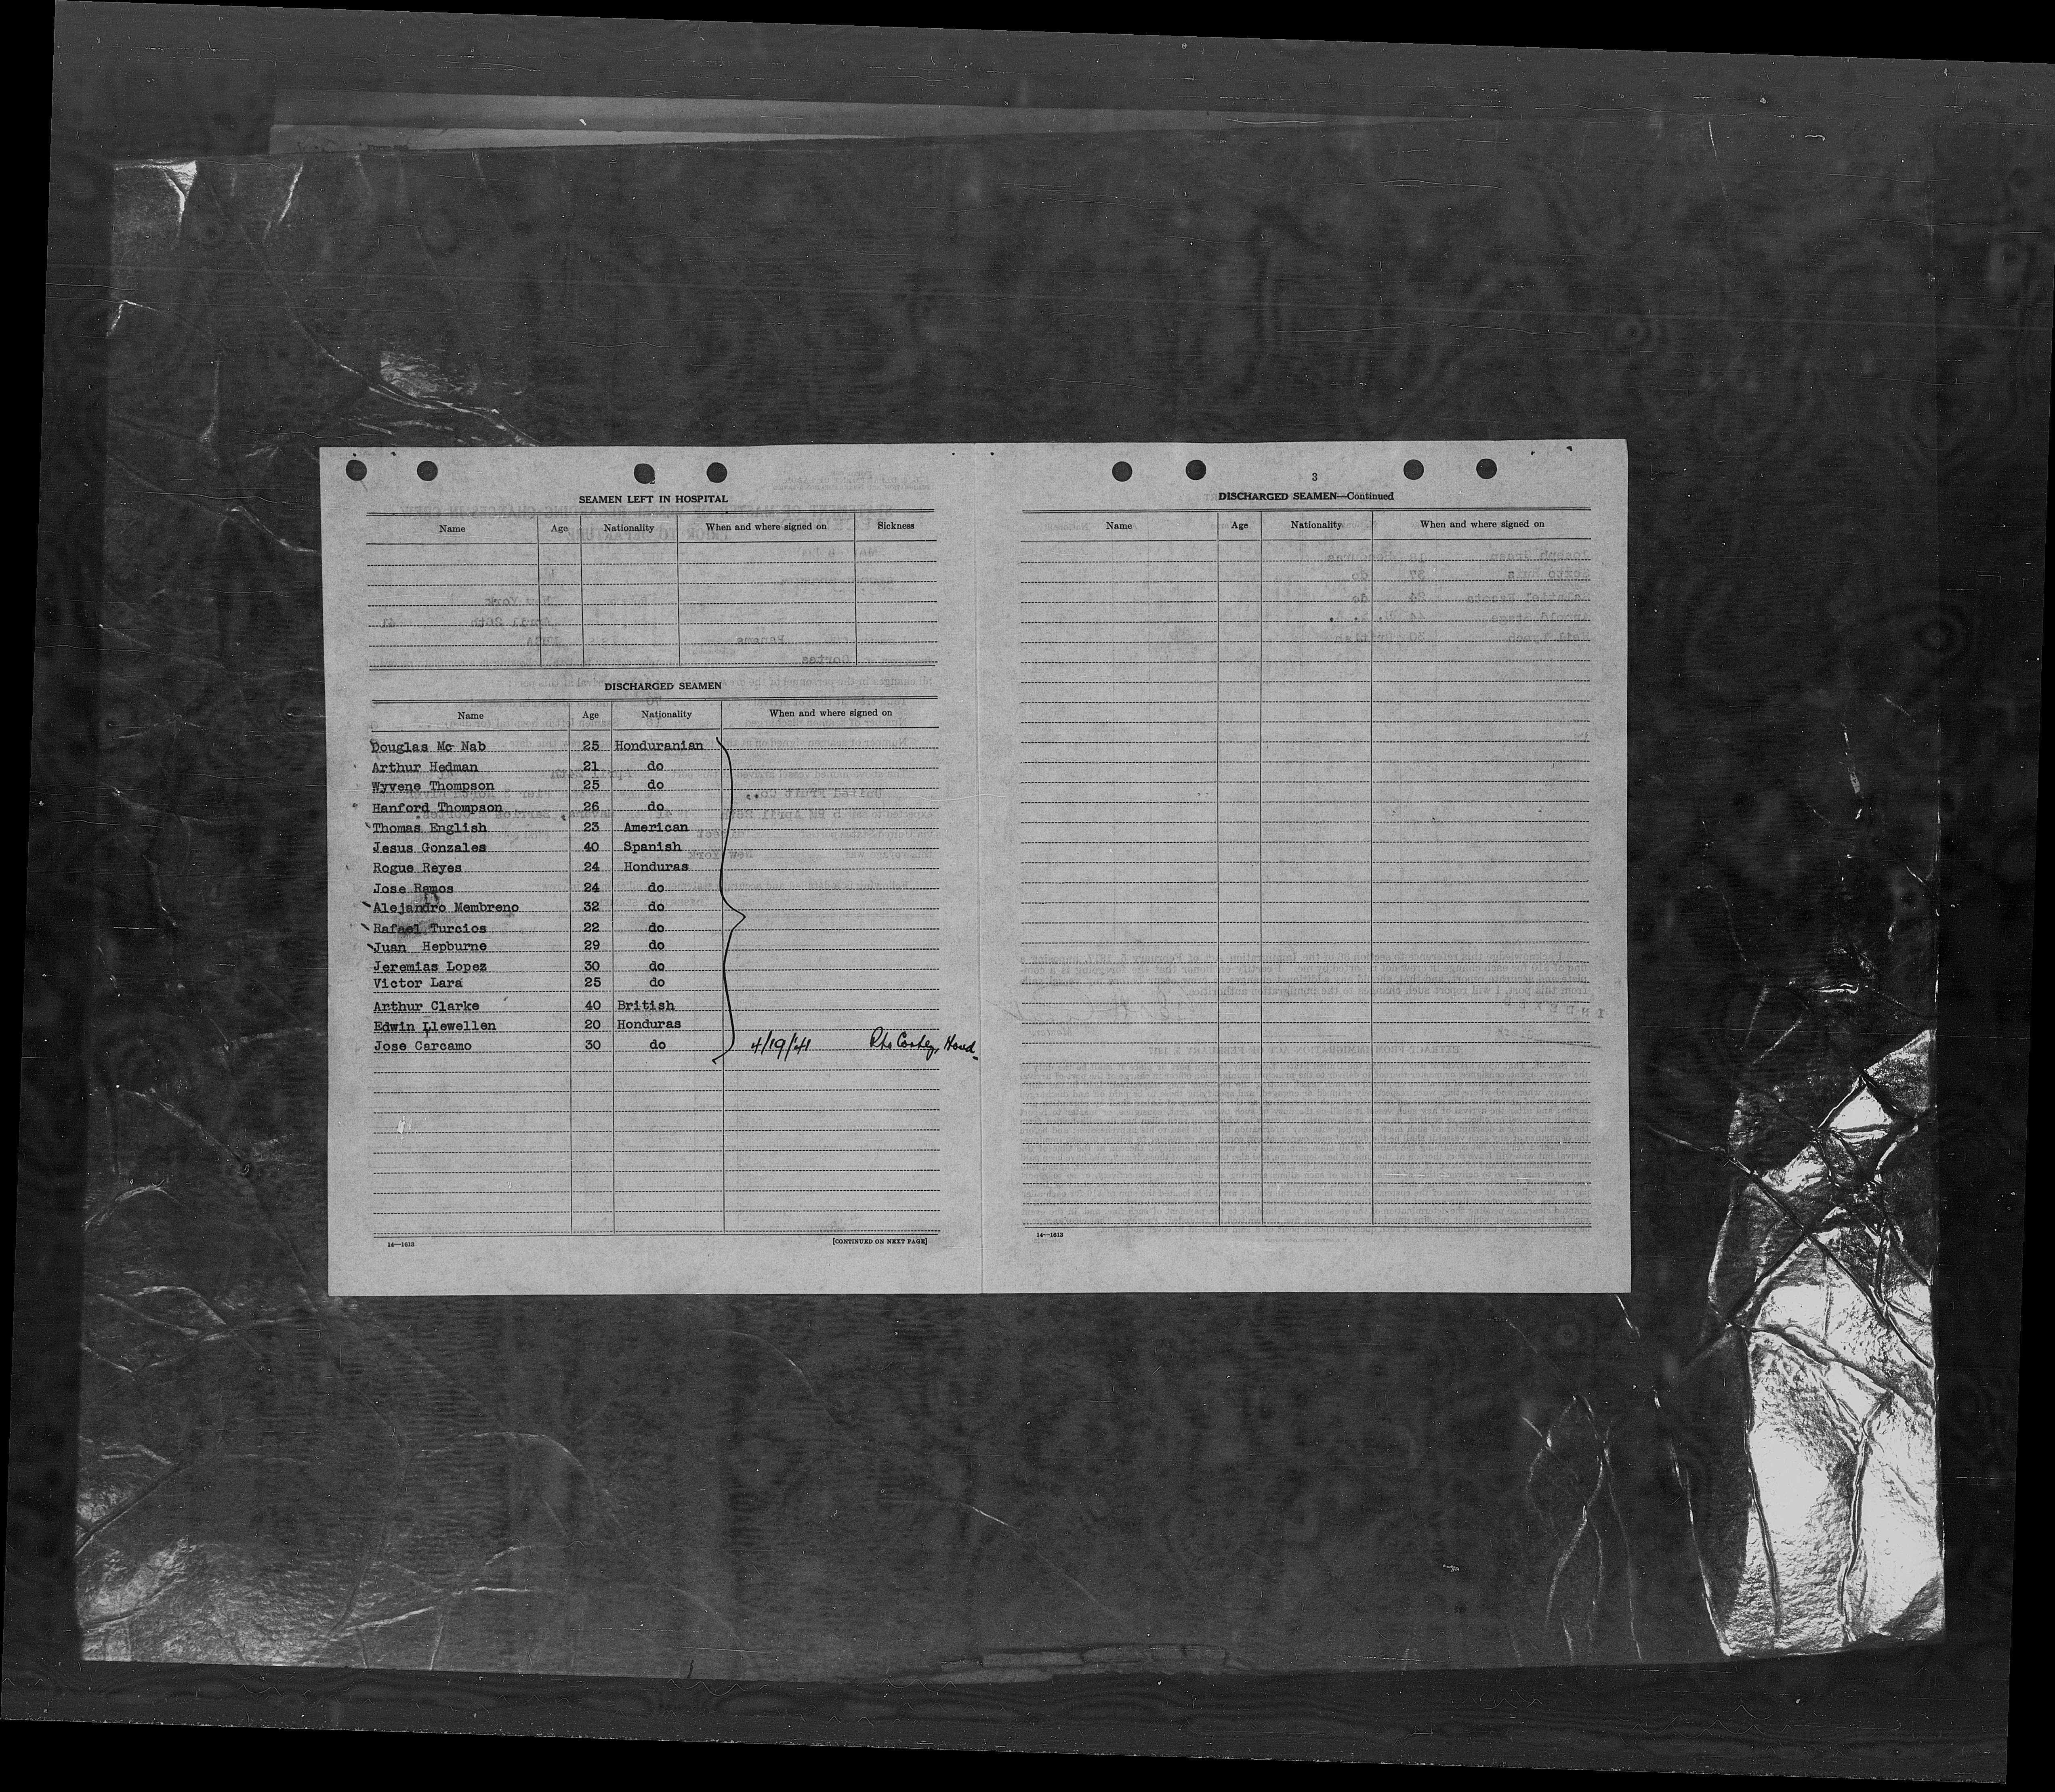 SEAMEN LEFT IN HOSPITAL
Name Age Nationality When and where signed on Sickness
DISCHARGED SEAMEN
Name Age Nationality When and where signed on
Douglas Mc Nab 25 Honduranian
Arthur Hedman 21 do
Wyvene Thompson 25 do
Hanford Thompson 26 do
Thomas English 23 American
Jesus Gonzales 40 Spanish
Rogue Reyes 24 Honduras
Jose Ramos 24 do
Alejandro Membreno 32 do
Rafael Turcios 22 do
Juan Hepburne 29 do
Jeremias Lopez 30 do
Victor Lara 25 do
Arthur Clarke 40 British
Edwin Llewellen 20 Honduras
Jose Carcamo 30 do 4/19/41 Pto Cortez, Hond
14—1613 [CONTINUED ON NEXT PAGE]
3
DISCHARGED SEAMEN—Continued
Name Age Nationality When and where signed on
14—1613